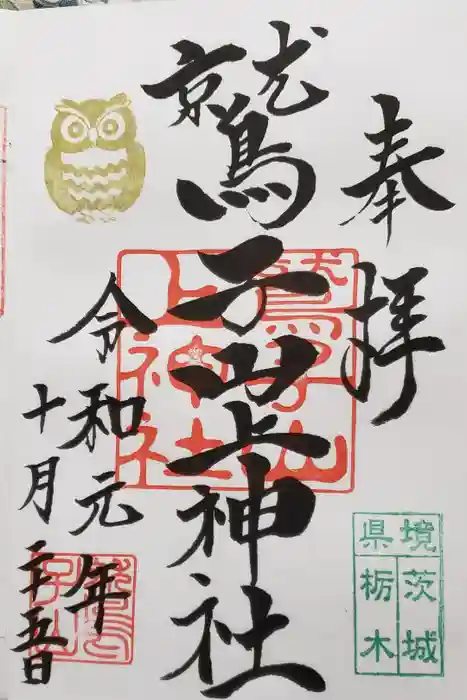 奉拝
鷲子山上神社
令和元年
十月二十五日
鷲子山
上神社
鷲子山
境 茨城
県 栃木